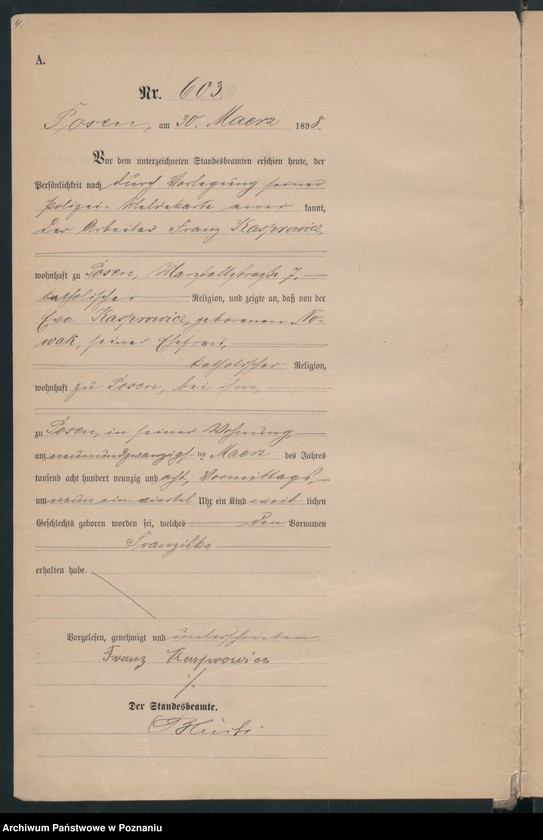 4.
A.
Nr. 603.
Posen, am 30. Maerz 1898.
Vor dem unterzeichneten Standesbeamten erschien heute, der
Persönlichkeit nach durch Vorlegung seiner
Polizei-Meldekarte aner kannt,
der Arbeiter Franz Kasprowicz,
wohnhaft zu Posen, 7,
katholischer Religion, und zeigte an, daß von der
Eva Kasprowicz, geborenen No-
wak, seiner Ehefrau,
katholischer Religion,
wohnhaft zu Posen, bei ihm,
zu Posen, in seiner Wohnung
am neunundzwanzigsten Maerz des Jahres
tausend acht hundert neunzig und acht, Vormittags,
um neun ein viertel Uhr ein Kind weib lichen
Geschlechts geboren worden sei, welches den Vornamen
Franziska
erhalten habe.
Vorgelesen, genehmigt und unterschrieben
Franz Kasprowicz
Der Standesbeamte.
Archiwum Państwowe w Poznaniu